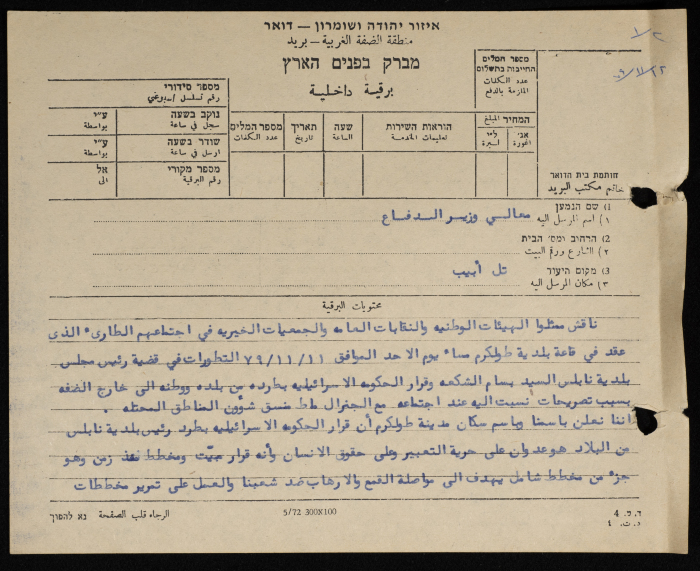 איזור יהודה ושומרון — דואר
منطقة الضفة الغربية — بريد
מברק בפנים הארץ
برقية داخلية
١/٢
מספר המלים
החייבות בתשלום
عدد الكلمات
الملزمة بالدفع
המחיר المبلغ
אג׳ اغورة
ל״י ليرة
הוראות השירות
تعليمات الخدمة
שעה
الساعة
תאריך
تاريخ
מספר המלים
عدد الكلمات
מספר סידורי
رقم تسلسل
נוקב בשעה
سجل في ساعة
ע״י
بواسطة
שודר בשעה
ارسل في ساعة
ע״י
بواسطة
מספר מקורי
رقم البرقية
אל
الى
חותמת בית הדואר
خاتم مكتب البريد
1) שם הנמען
١) اسم المرسل اليه
معالي وزير الدفاع
2) הרחוב ומס׳ הבית
٢) الشارع ورقم البيت
3) מקום היעוד
٣) مكان المرسل اليه
تل أبيب
محتويات البرقية
ناقش ممثلوا الهيئات الوطنيه والنقابات العامه والجمعيات الخيريه في اجتماعهم الطارىء الذي
عقد في قاعة بلدية طولكرم مساء يوم الاحد الموافق ٧٩/١١/١١ التطورات في قضية رئيس مجلس
بلدية نابلس السيد بسام الشكعه وقرار الحكومه الاسرائيليه بطرده من بلده ووطنه الى خارج الضفه
بسبب تصريحات نسبت اليه عند اجتماعه مع الجنرال ماط منسق شؤون المناطق المحتله .
اننا نعلن باسمنا وباسم سكان مدينة طولكرم أن قرار الحكومه الاسرائيليه بطرد رئيس بلدية نابلس
من البلاد هو عدوان على حرية التعبير وعلى حقوق الانسان وأنه قرار مبيّت ومخطط منذ زمن وهو
جزء من مخطط شامل يهدف الى مواصلة القمع والارهاب ضد شعبنا والعمل على تمرير مخططات
ד. ט. 4
د. ت. ٤
5/72 300X100
الرجاء قلب الصفحة
נא להפוך